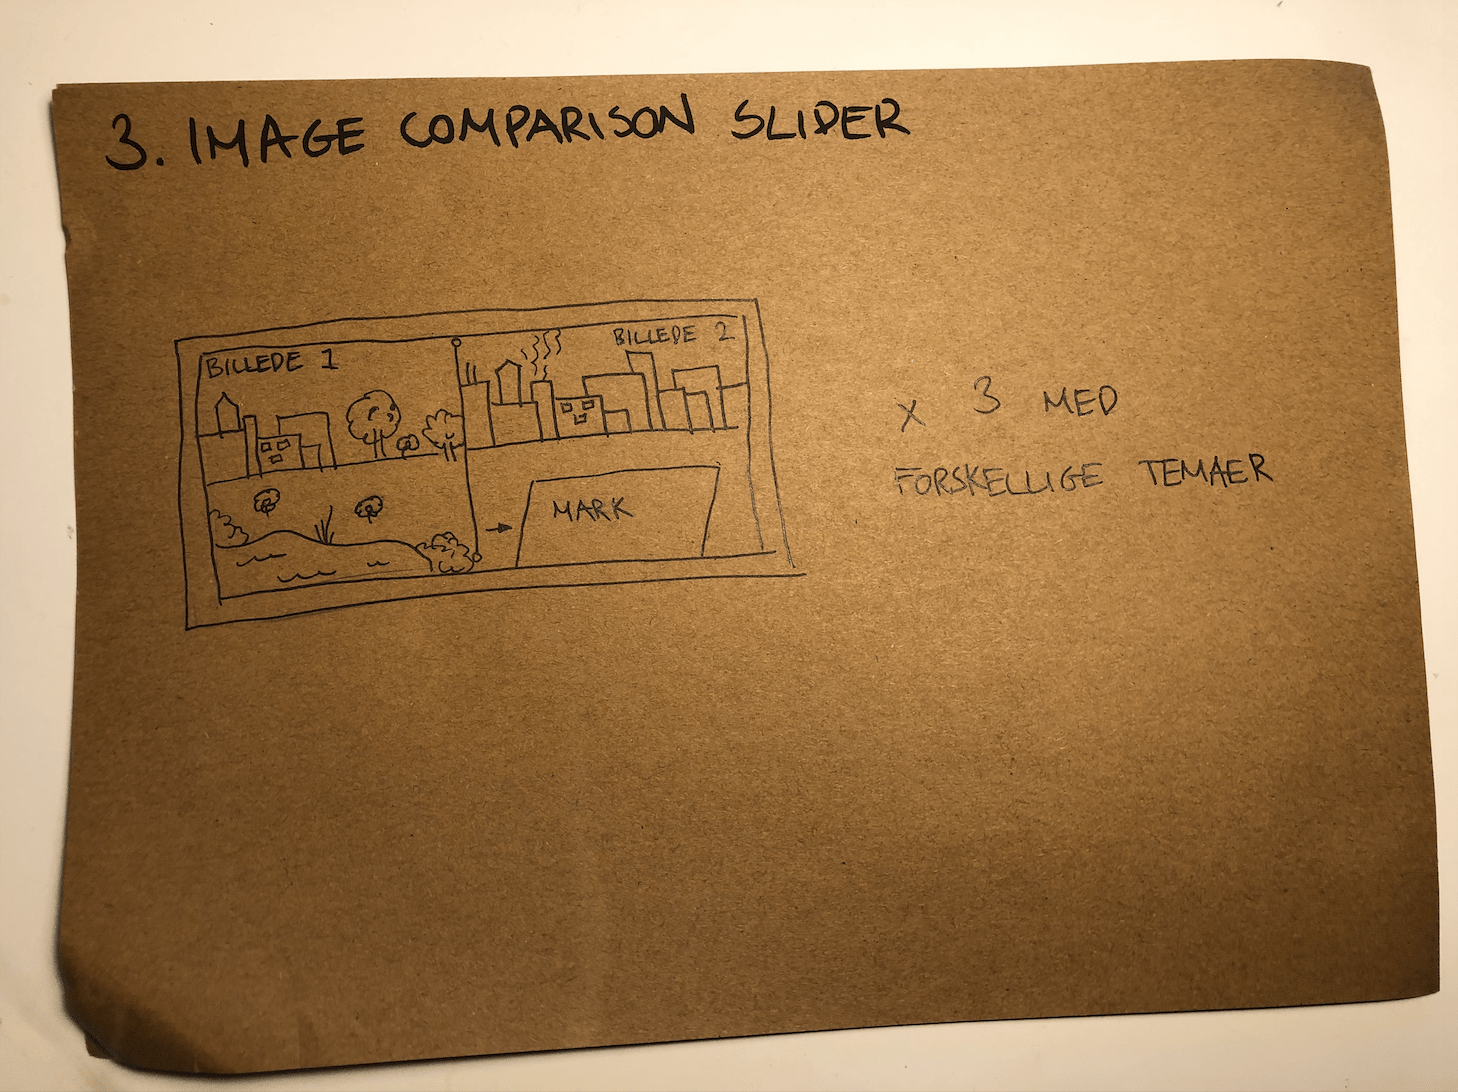 3. IMAGE COMPARISON SLIDER
BILLEDE 1
BILLEDE 2
MARK
x 3 MED
FORSKELLIGE TEMAER